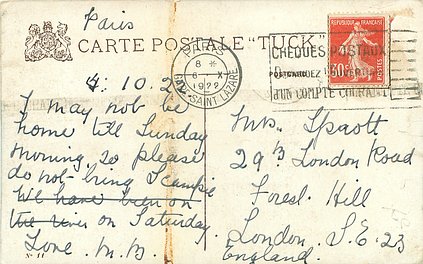 Paris
CARTE POSTALE "TUCK"
POSTCARD
PARIS
8 *
6 - X
1922
GARE SAINT LAZARE
CHÈQUES POSTAUX
D'UN COMPTE COURANT
RÉPUBLIQUE FRANÇAISE
30c
POSTES
4. 10. 2
I may not be
home till Sunday
morning so please
do not bring Scampie
We have been on
the river on Saturday.
Love M.B.
Mrs. Sprott
29 London Road
Forest Hill
London, S.E. 23
England.